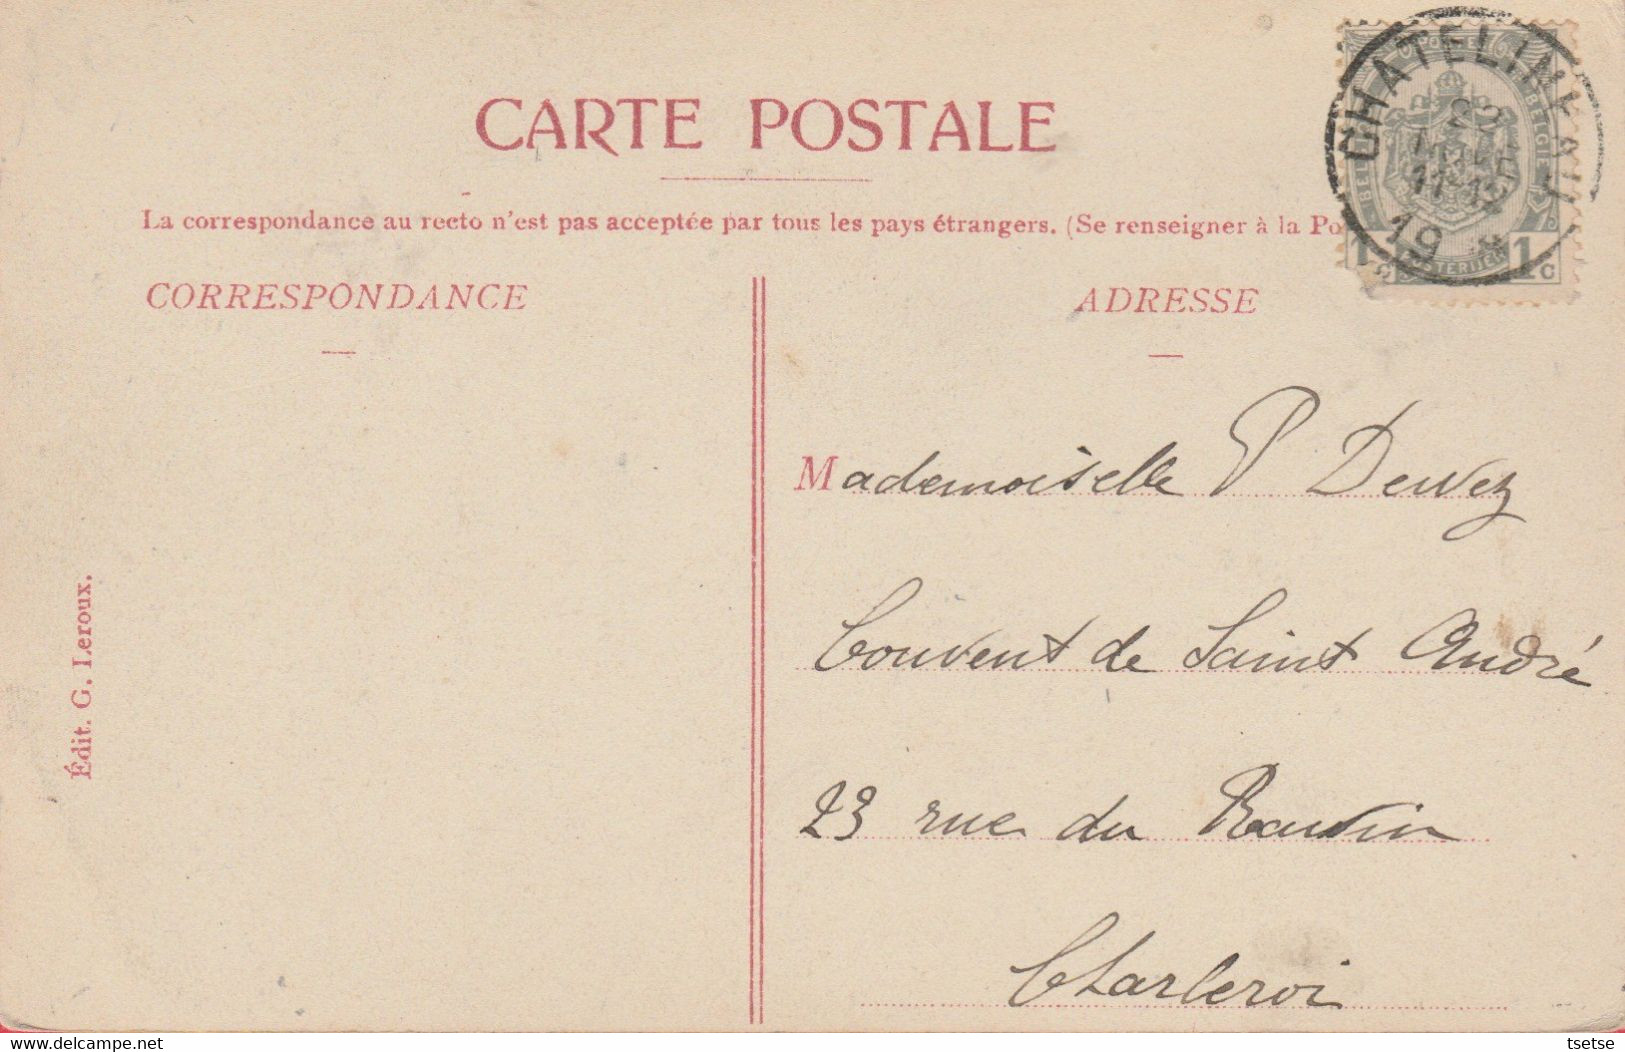 CARTE POSTALE
La correspondance au recto n'est pas acceptée par tous les pays étrangers. (Se renseigner à la Po
CORRESPONDANCE
ADRESSE
CHATELINEAU
22
11-12
19
1c
Mademoiselle P Dewez
Couvent de Saint André
23 rue du Ravin
Charleroi
Édit. G. Leroux.
delcampe.net
tsetse